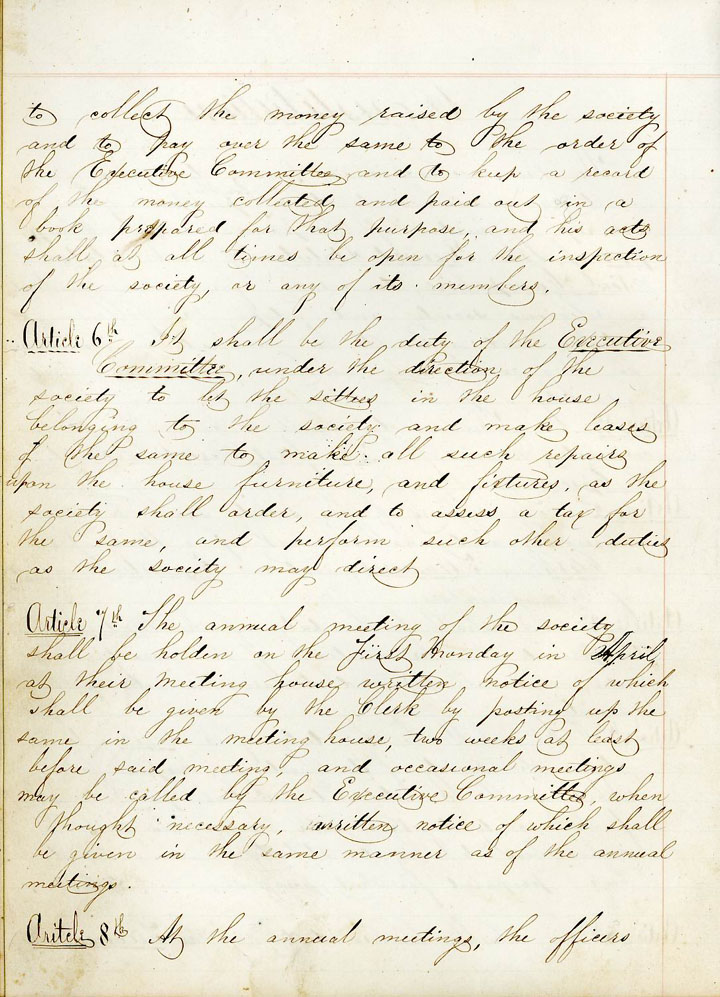 to collect the money raised by the society
and to pay over the same to the order of
the Executive Committee and to keep a record
of the money collected and paid out in a
book prepared for that purpose, and his acts
shall at all times be open for the inspection
of the society, or any of its members.
Article 6th It shall be the duty of the Executive
Committee, under the direction of the
society to let the settees in the house
belonging to the society and make leases
of the same to make all such repairs
upon the house furniture, and fixtures, as the
society shall order, and to assess a tax for
the same, and perform such other duties
as the society may direct
Article 7th The annual meeting of the society
shall be holden on the First Monday in April
at their meeting house written notice of which
shall be given by the Clerk by posting up the
same in the meeting house, two weeks at least
before said meeting, and occasional meetings
may be called by the Executive Committee, when
thought necessary, written notice of which shall
be given in the same manner as of the annual
meetings.
Aritcle 8th At the annual meetings, the officers